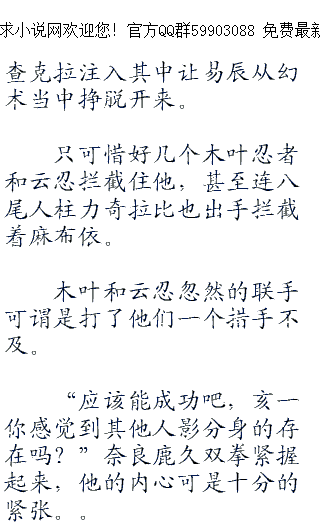 求小说网欢迎您！官方QQ群59903088 免费最新
查克拉注入其中让易辰从幻
术当中挣脱开来。
只可惜好几个木叶忍者
和云忍拦截住他，甚至连八
尾人柱力奇拉比也出手拦截
着麻布依。
木叶和云忍忽然的联手
可谓是打了他们一个措手不
及。
“应该能成功吧，亥一
你感觉到其他人影分身的存
在吗？”奈良鹿久双拳紧握
起来，他的内心可是十分的
紧张。。